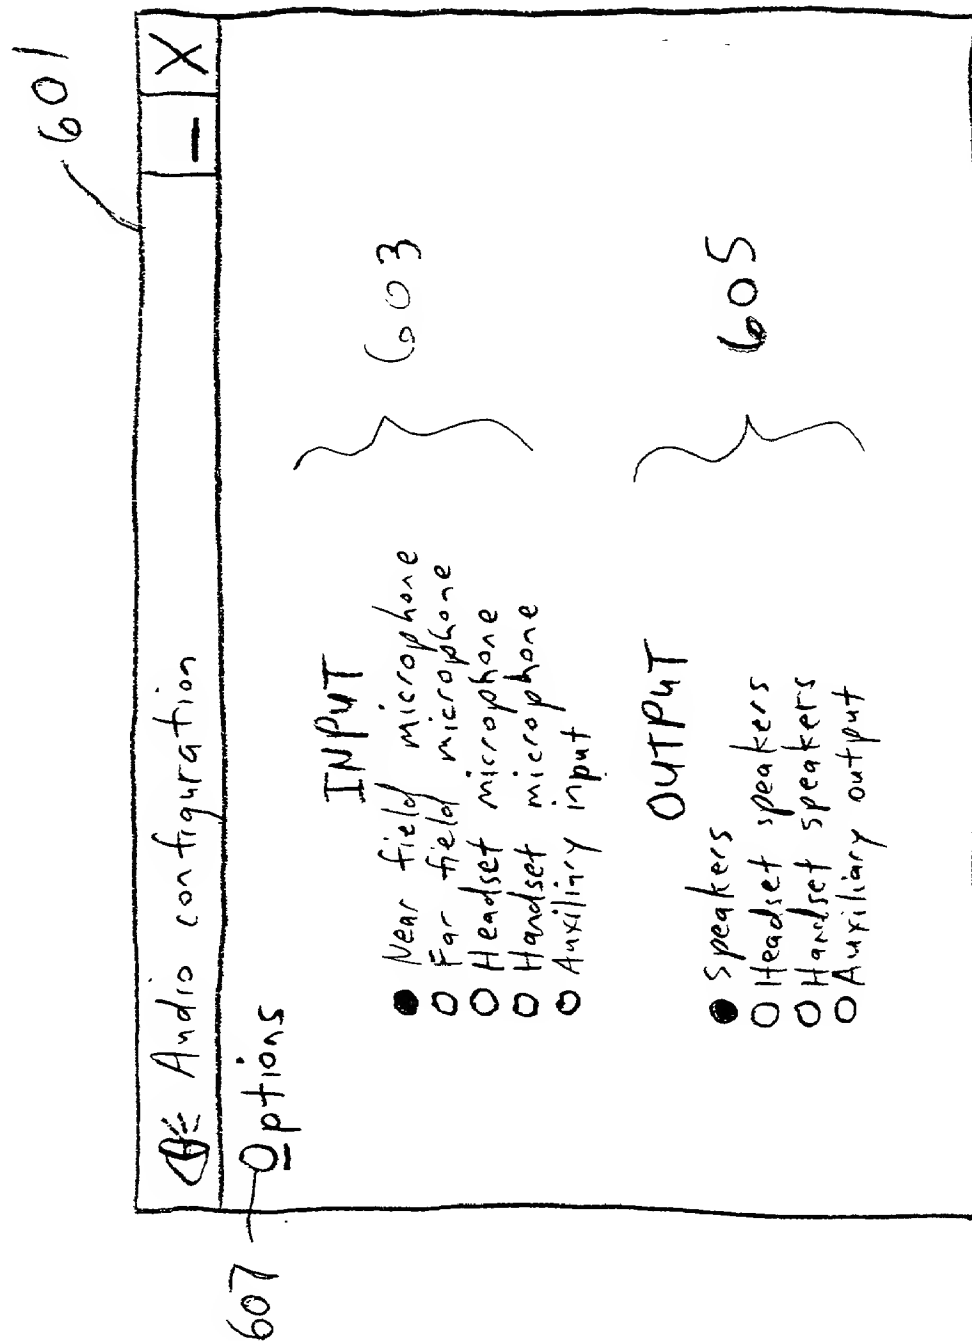 601
Audio configuration
— X
607
Options
INPUT
Near field microphone
Far field microphone
Headset microphone
Handset microphone
Auxiliary input
603
OUTPUT
Speakers
Headset speakers
Handset speakers
Auxiliary output
605